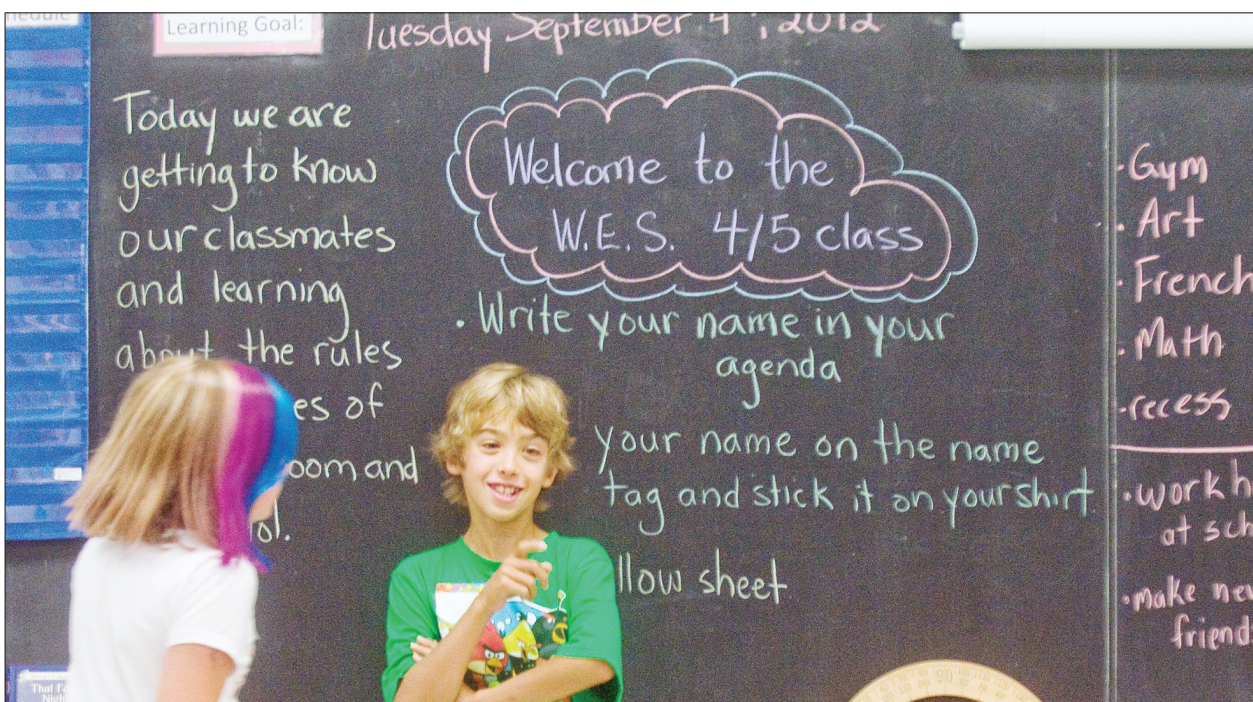 Learning Goal:
Tuesday September 4th, 2012
Today we are
getting to know
our classmates
and learning
about the rules
es of
oom and
ol.
Welcome to the
W.E.S. 4/5 class
· Write your name in your
agenda
your name on the name
tag and stick it on your shirt
llow sheet
· Gym
· Art
· French
· Math
· recess
· work h
at sch
· make new
friend
That I
Nigh
90